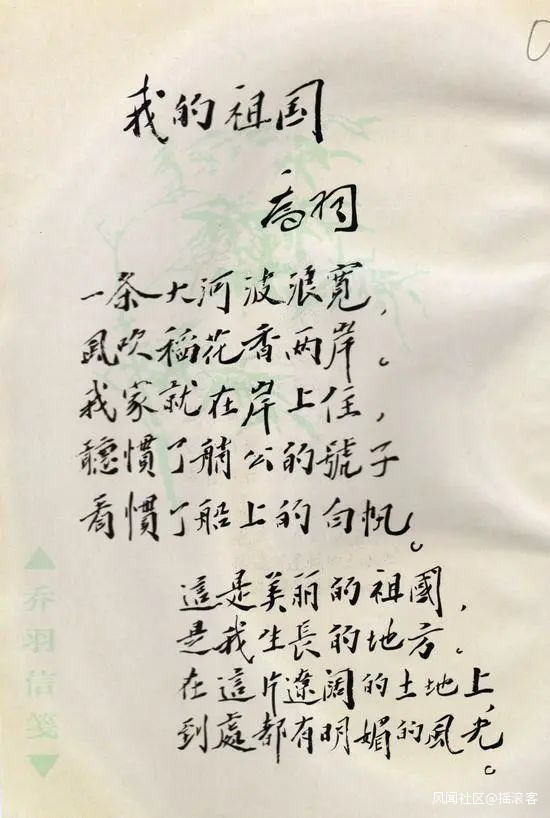 我的祖国
乔羽
一条大河波浪寬，
風吹稻花香两岸。
我家就在岸上住，
聽慣了艄公的號子
看慣了船上的白帆。
這是美丽的祖國，
是我生長的地方。
在這片遼阔的土地上，
到處都有明媚的風光。
乔羽信笺
风闻社区@摇滚客